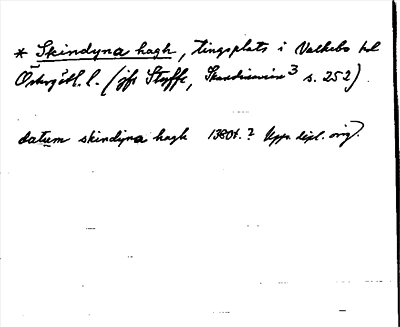 * Skindyna hagh, tingsplats i Valkebo hd
Östergötl. l. (jfr Styffe, Skandinavien³ s. 252).
datum skindyna hagh 1380t.? Upps. dipl. orig.